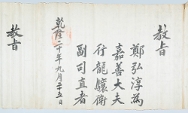 教旨
鄭弘淳爲
嘉善大夫
行龍驤衛
副司直者
乾隆二十年九月二十五日
教旨